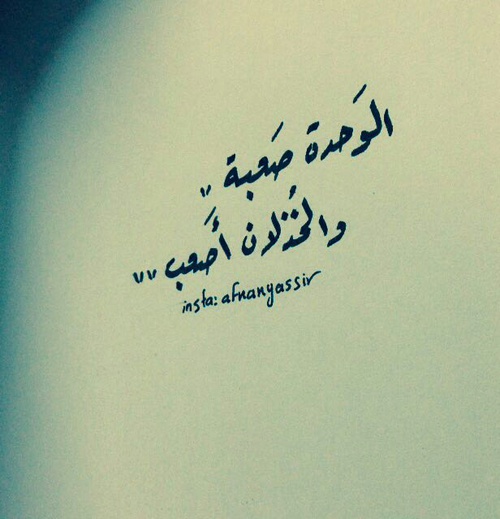 الوَحدة صَعبة ,,
والخُذلان أَصعب ,,,,
insta: afnanyassir